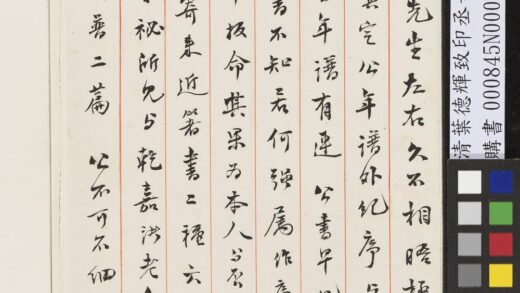 先生左右久不相晤
其定公年譜外紀序
公年譜有遲公書早
書不知若何強属作
板命其果為本人
寄来近箸書二種六
祕所允与乾嘉洪老
箸二篇公不可不細
清葉德輝致印丞
購書 000845N000